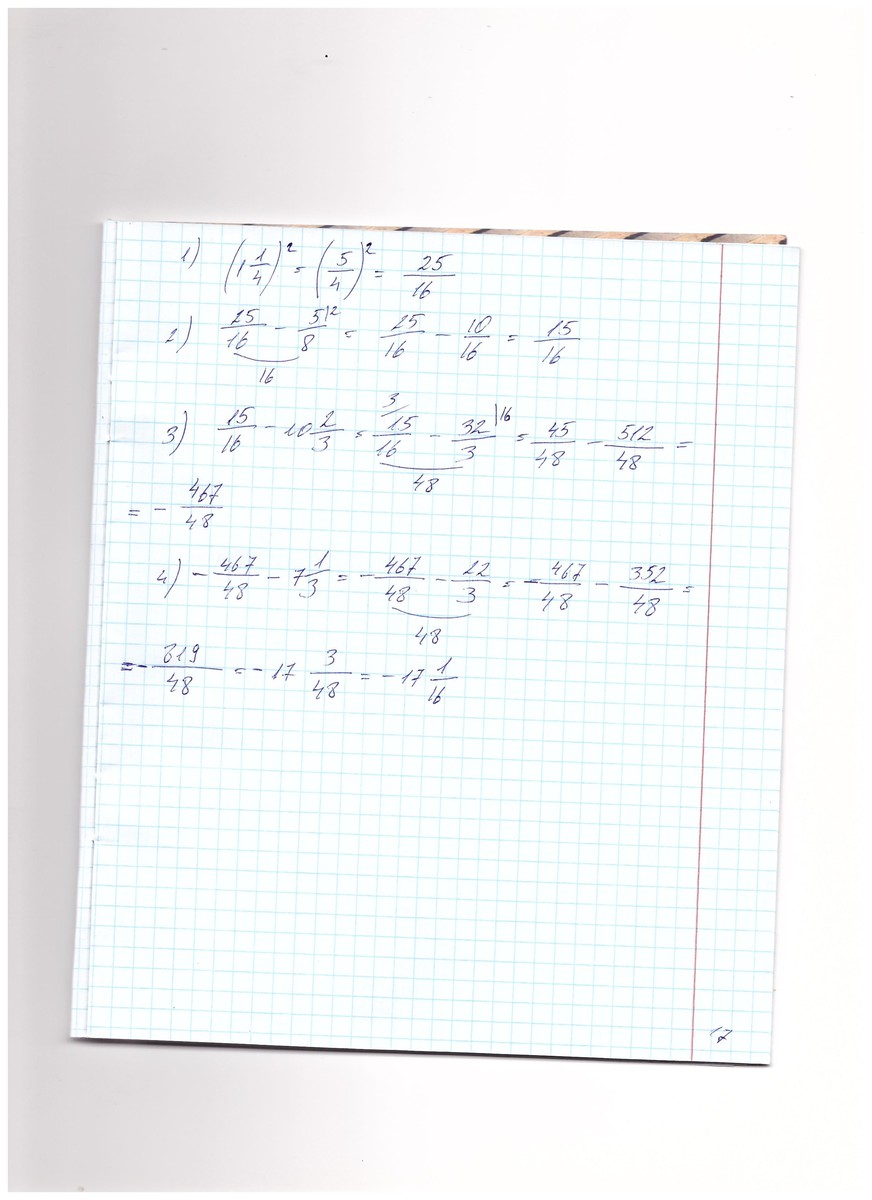 1) (1 1/4)² = (5/4)² = 25/16
2) 25/16 - 5/8 |2 = 25/16 - 10/16 = 15/16
16
3) 15/16 - 10 2/3 = 3/ 15/16 - 32/3 |16 = 45/48 - 512/48 =
48
= - 467/48
4) - 467/48 - 7 1/3 = - 467/48 - 22/3 = - 467/48 - 352/48 =
48
= - 819/48 = - 17 3/48 = - 17 1/16
17